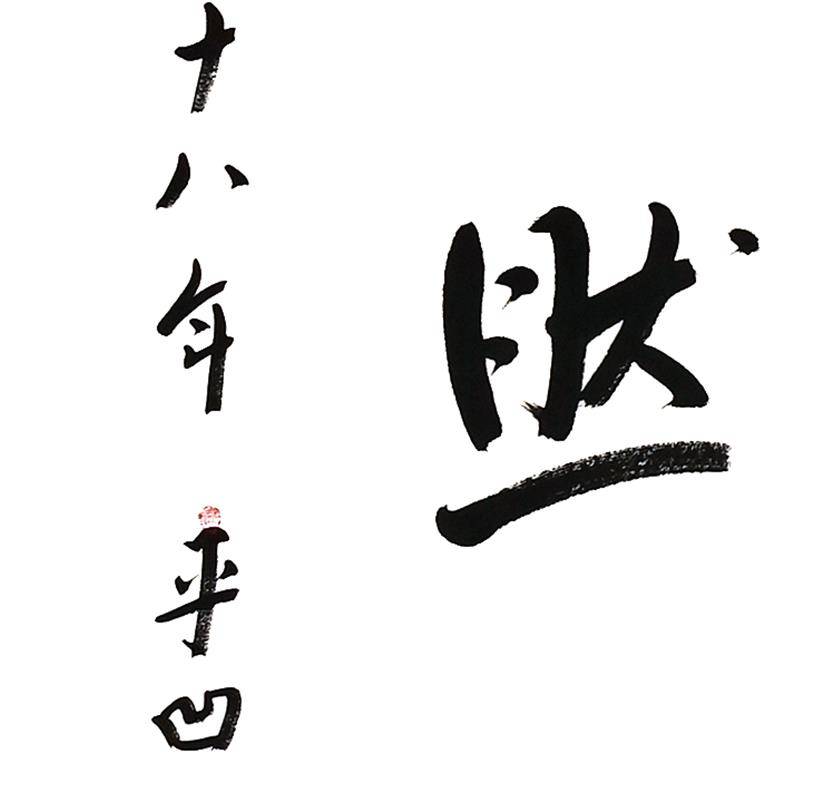 然
十八年 平凹